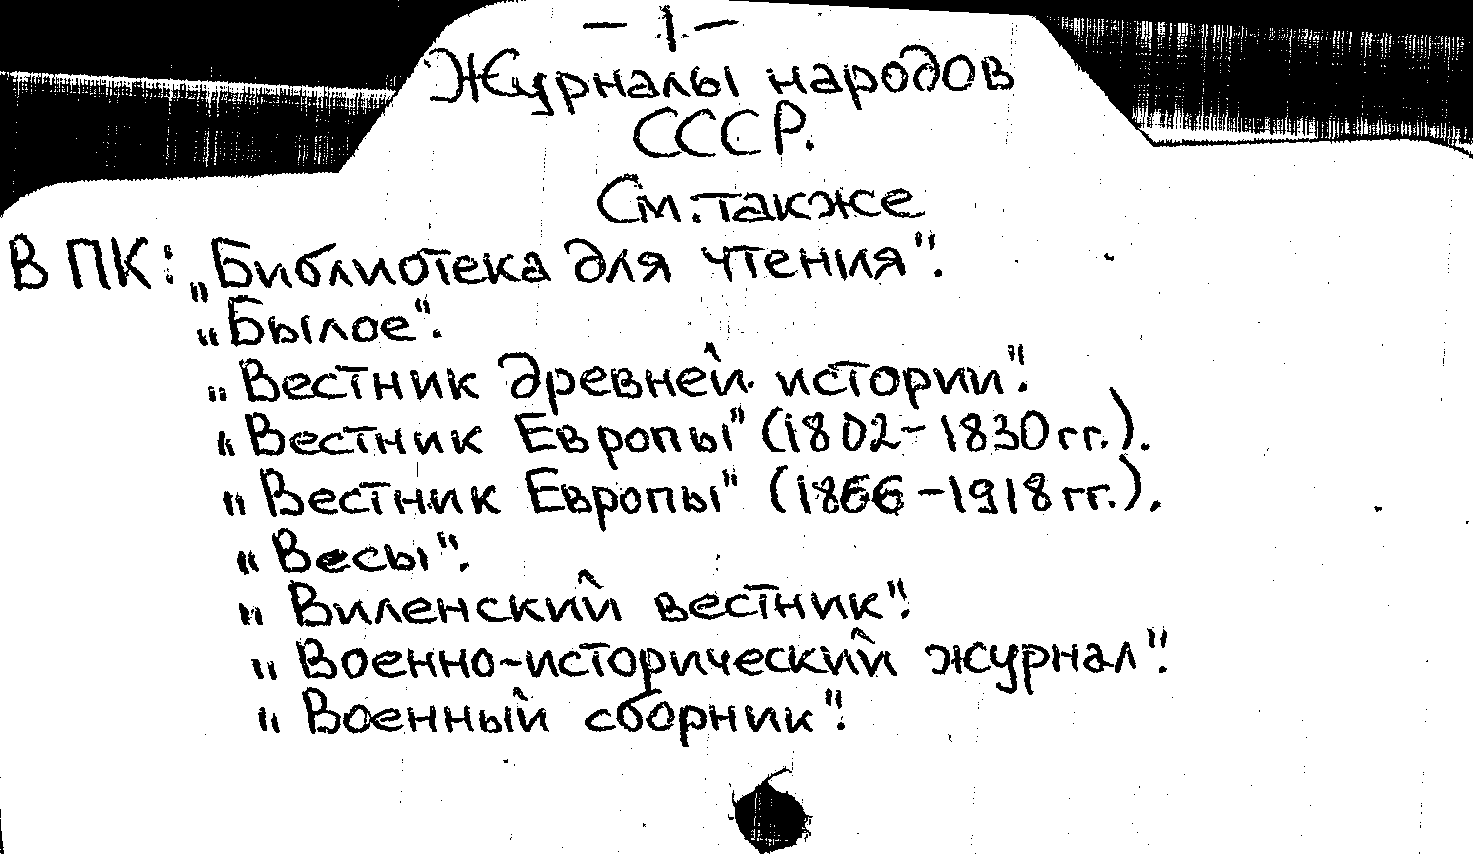 — 1 —
Журналы народов
СССР.
См. также
В ПК: „Библиотека для чтения".
„Былое".
„Вестник древней истории".
„Вестник Европы" (1802-1830 гг.).
„Вестник Европы" (1866-1918 гг.).
„Весы".
„Виленский вестник".
„Военно-исторический журнал".
„Военный сборник".